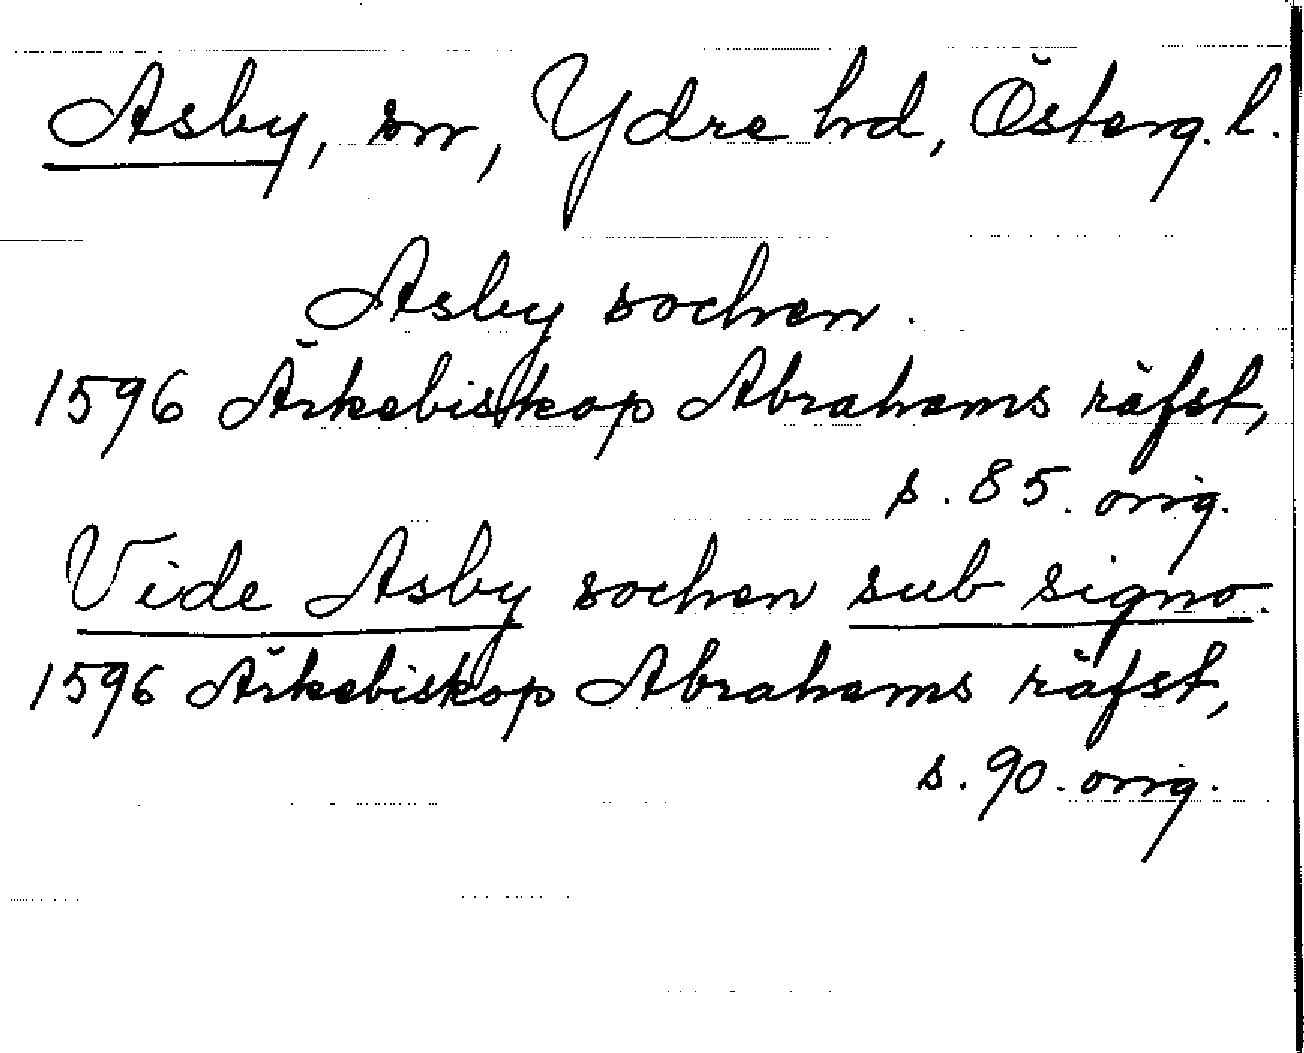 Asby, sn, Ydre hd, Österg. l.
Asby sochen.
1596 Ärkebiskop Abrahams räfst,
s. 85. orig.
Vide Asby sochen sub signo.
1596 Ärkebiskop Abrahams räfst,
s. 90. orig.